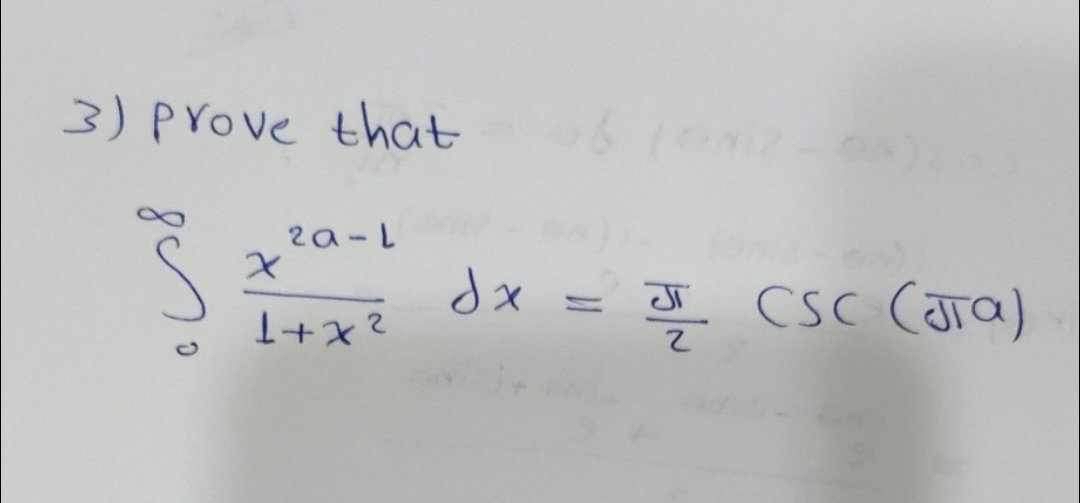 3) prove that
∫₀^∞ x^(2a-1) / (1+x²) dx = π/2 csc (πa)